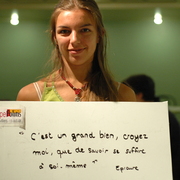 "C'est un grand bien, croyez
moi, que de savoir se suffire
à soi-même"
Epicure